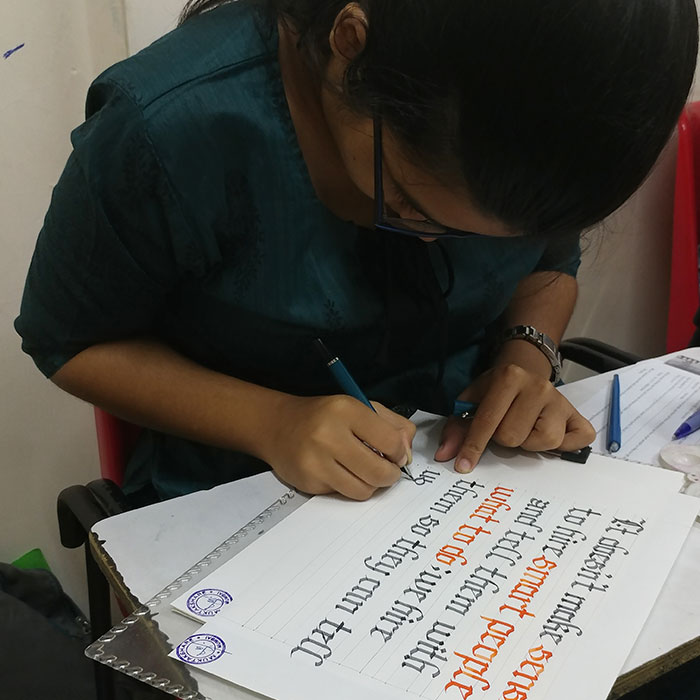 It doesn't make sens
to hire smart people
and tell them with
what to do, we hire
them so they can tell